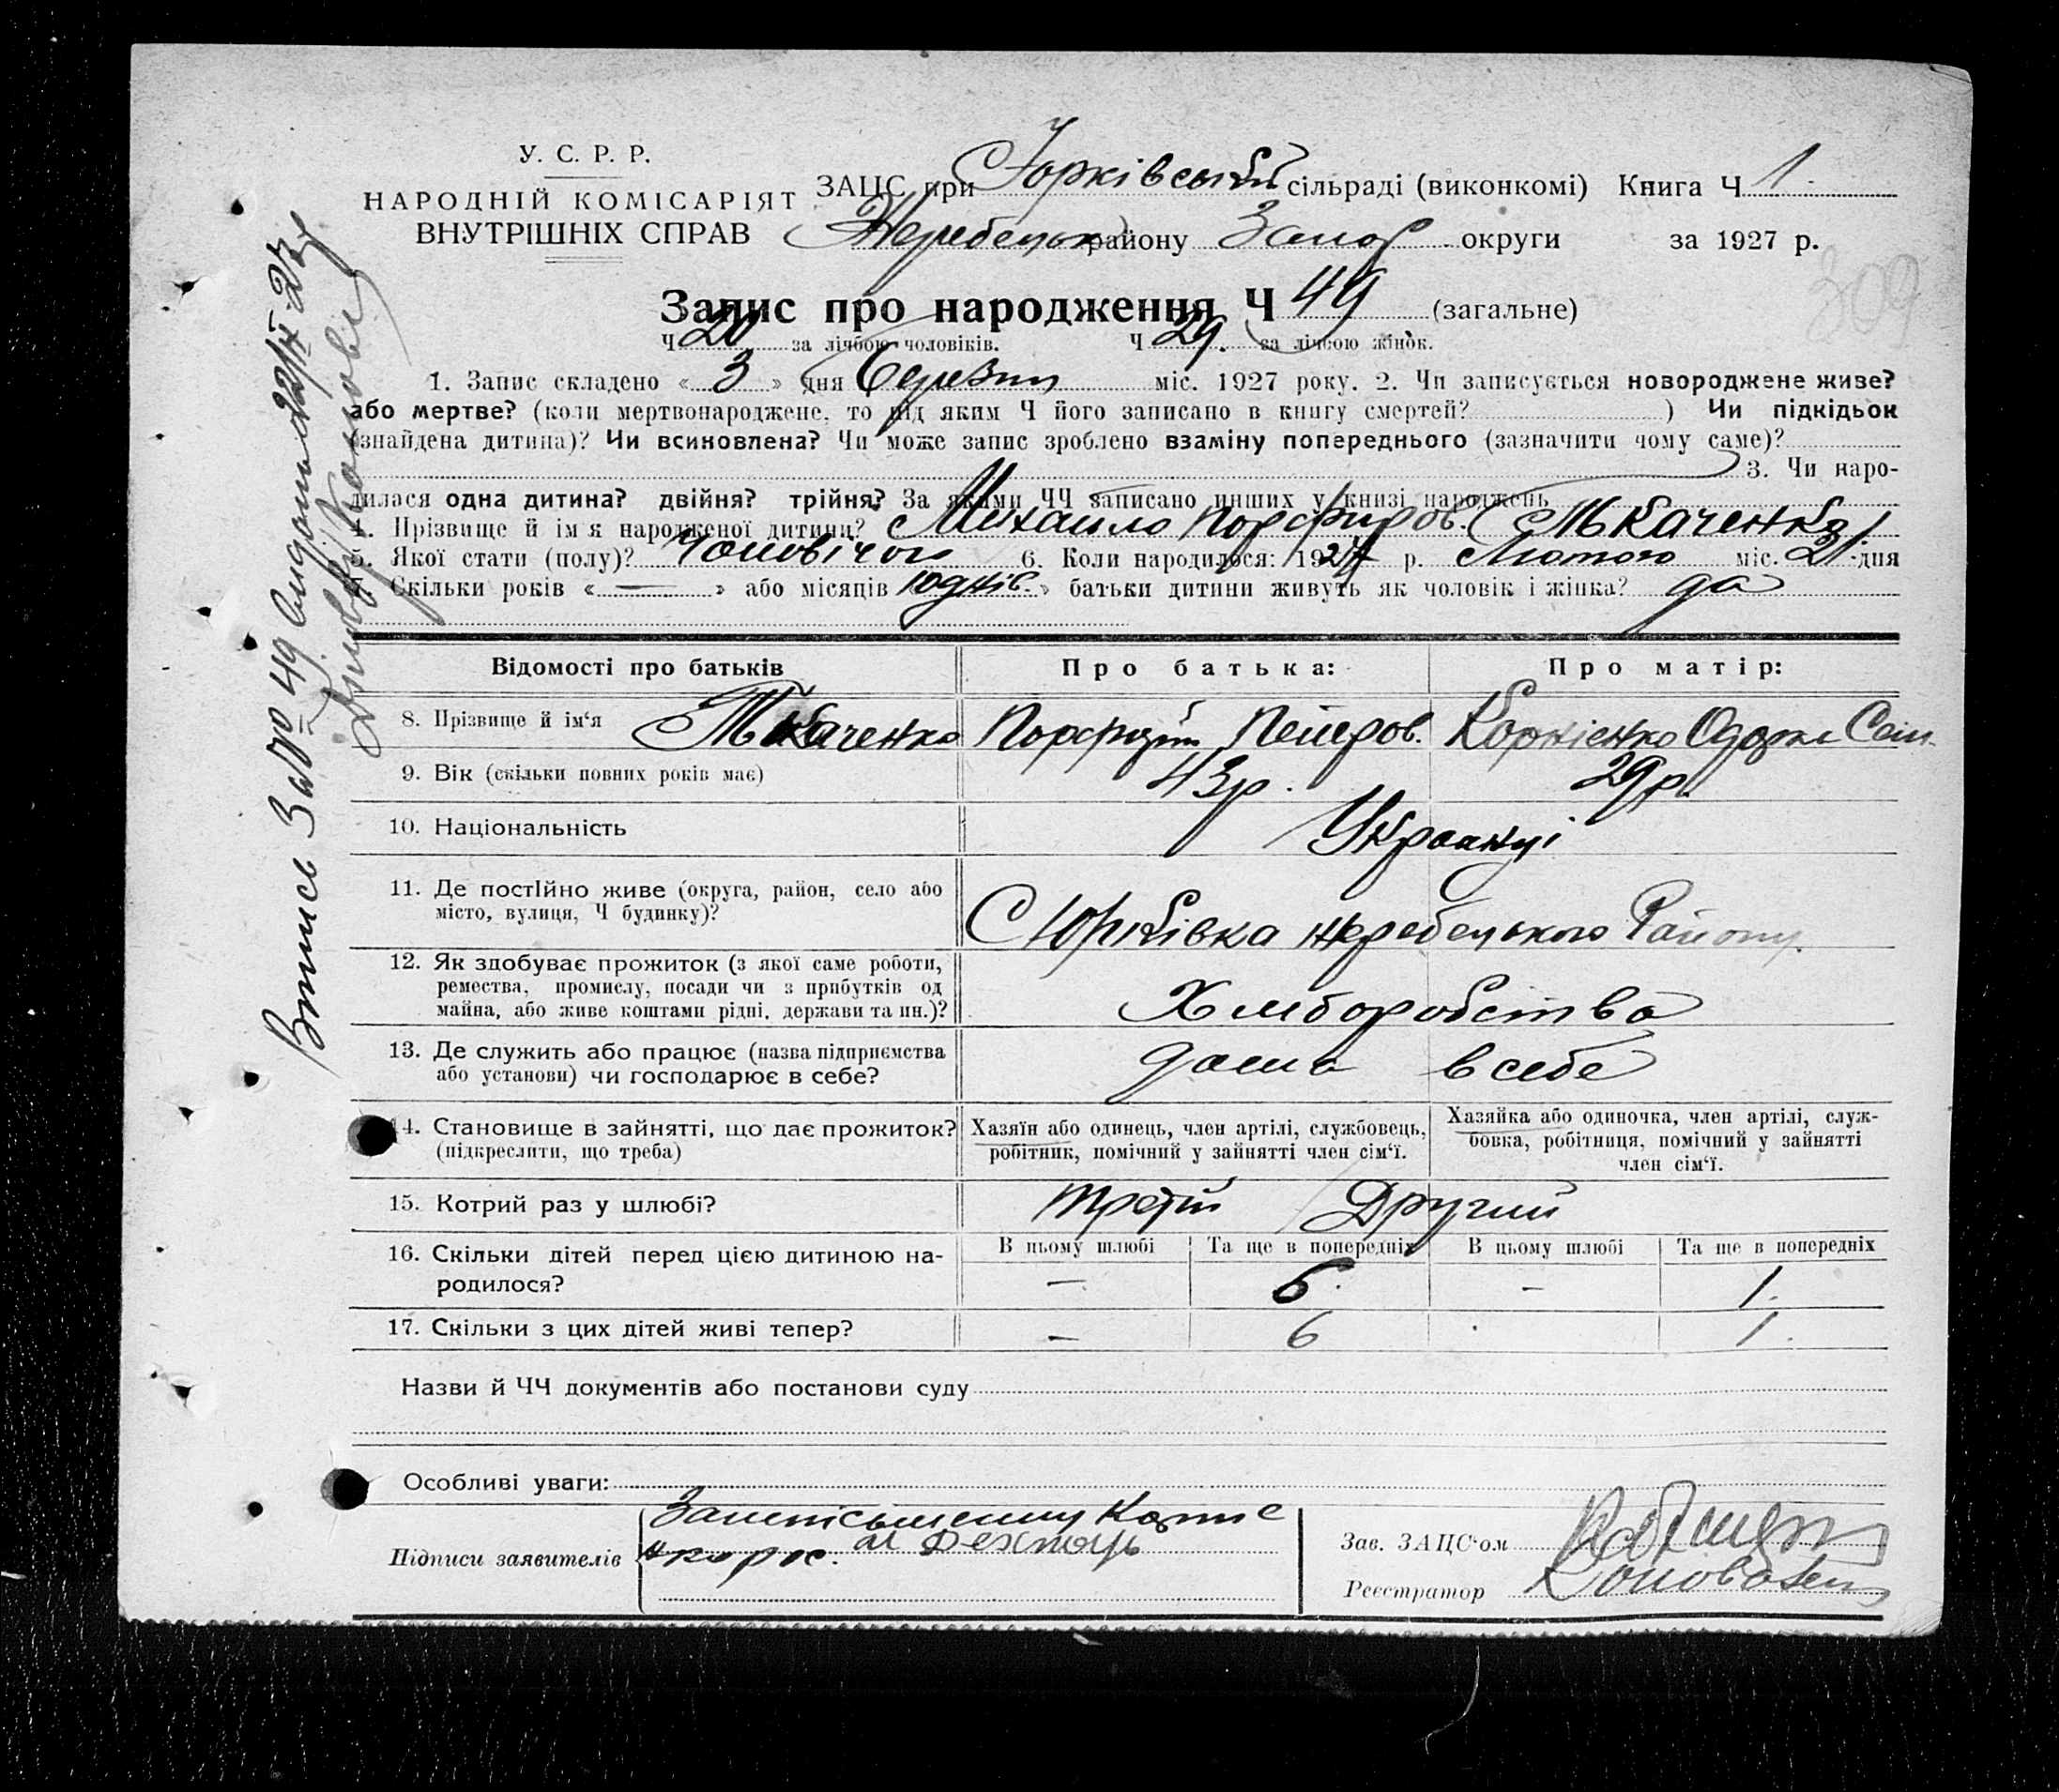 У. С. Р. Р.
НАРОДНІЙ КОМІСАРІЯТ
ВНУТРІШНІХ СПРАВ
ЗАЦС при Юрківській сільраді (виконкомі) Книга Ч 1.
Жеребецьк району Запор округи за 1927 р.
309
Запис про народження Ч 49 (загальне)
Ч 20 за лічбою чоловіків. Ч 29. за лічбою жінок.
1. Запис складено « 3 » дня Березня міс. 1927 року. 2. Чи записується новороджене живе?
або мертве? (коли мертвонароджене, то під яким Ч його записано в книгу смертей? ) Чи підкідьок
(знайдена дитина)? Чи всиновлена? Чи може запис зроблено взаміну попереднього (зазначити чому саме)?
3. Чи наро-
дилася одна дитина? двійня? трійня? За якими ЧЧ записано инших у книзі народжень
4. Прізвище й ім'я народженої дитини? Михайло Порфиров. Ткаченко
5. Якої стати (полу)? Чоловічого 6. Коли народилося: 1927 р. Лютого міс. 21 дня
7. Скільки років « — » або місяців « 10 днів. » батьки дитини живуть як чоловік і жінка? да
Відомості про батьків Про батька: Про матір:
8. Прізвище й ім'я Ткаченко Порфирій Петров. Корнієнко
9. Вік (скільки повних років має) 43 р. 29 р.
10. Національність Українці
11. Де постійно живе (округа, район, село або
місто, вулиця, Ч будинку)?
С Юрківка Жеребецького Району.
12. Як здобуває прожиток (з якої саме роботи,
ремества, промислу, посади чи з прибутків од
майна, або живе коштами рідні, держави та ин.)?
Хліборобства
13. Де служить або працює (назва підприємства
або установи) чи господарює в себе?
дома в себе
14. Становище в зайнятті, що дає прожиток?
(підкреслити, що треба)
Хазяїн або одинець, член артілі, службовець,
робітник, помічний у зайнятті член сім'ї.
Хазяйка або одиночка, член артілі, служ-
бовка, робітниця, помічний у зайнятті
член сім'ї.
15. Котрий раз у шлюбі? Третій Другий
В цьому шлюбі Та ще в попередніх В цьому шлюбі Та ще в попередніх
16. Скільки дітей перед цією дитиною на-
родилося?
— 6. — 1.
17. Скільки з цих дітей живі тепер? — 6 1.
Назви й ЧЧ документів або постанови суду
Особливі уваги:
Підписи заявителів
Зав. ЗАЦС'ом
Реєстратор